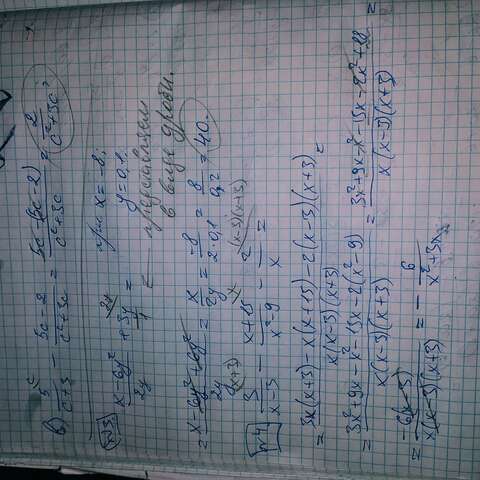 в) 5/(c+3) - (5c-2)/(c²+3c) = (5c-(5c-2))/(c²+3c) = 2/(c²+3c);
№3. (x-6y²)/2y + 3y/1 = при x = -8;
y = 0,1.
← представляем
в виде дроби.
= (x-6y²+6y²)/2y = x/2y = -8/(2·0,1) = 8/0,2 = 40.
№4. 3/(x-3) - (x+15)/(x²-9) - 2/x =
= (3x(x+3) - x(x+15) - 2(x-3)(x+3))/(x(x-3)(x+3)) =
= (3x²+9x-x²-15x-2(x²-9))/(x(x-3)(x+3)) = (3x²+9x-x²-15x-2x²+18)/(x(x-3)(x+3)) =
= -6(x-3)/(x(x-3)(x+3)) = - 6/(x²+3x)